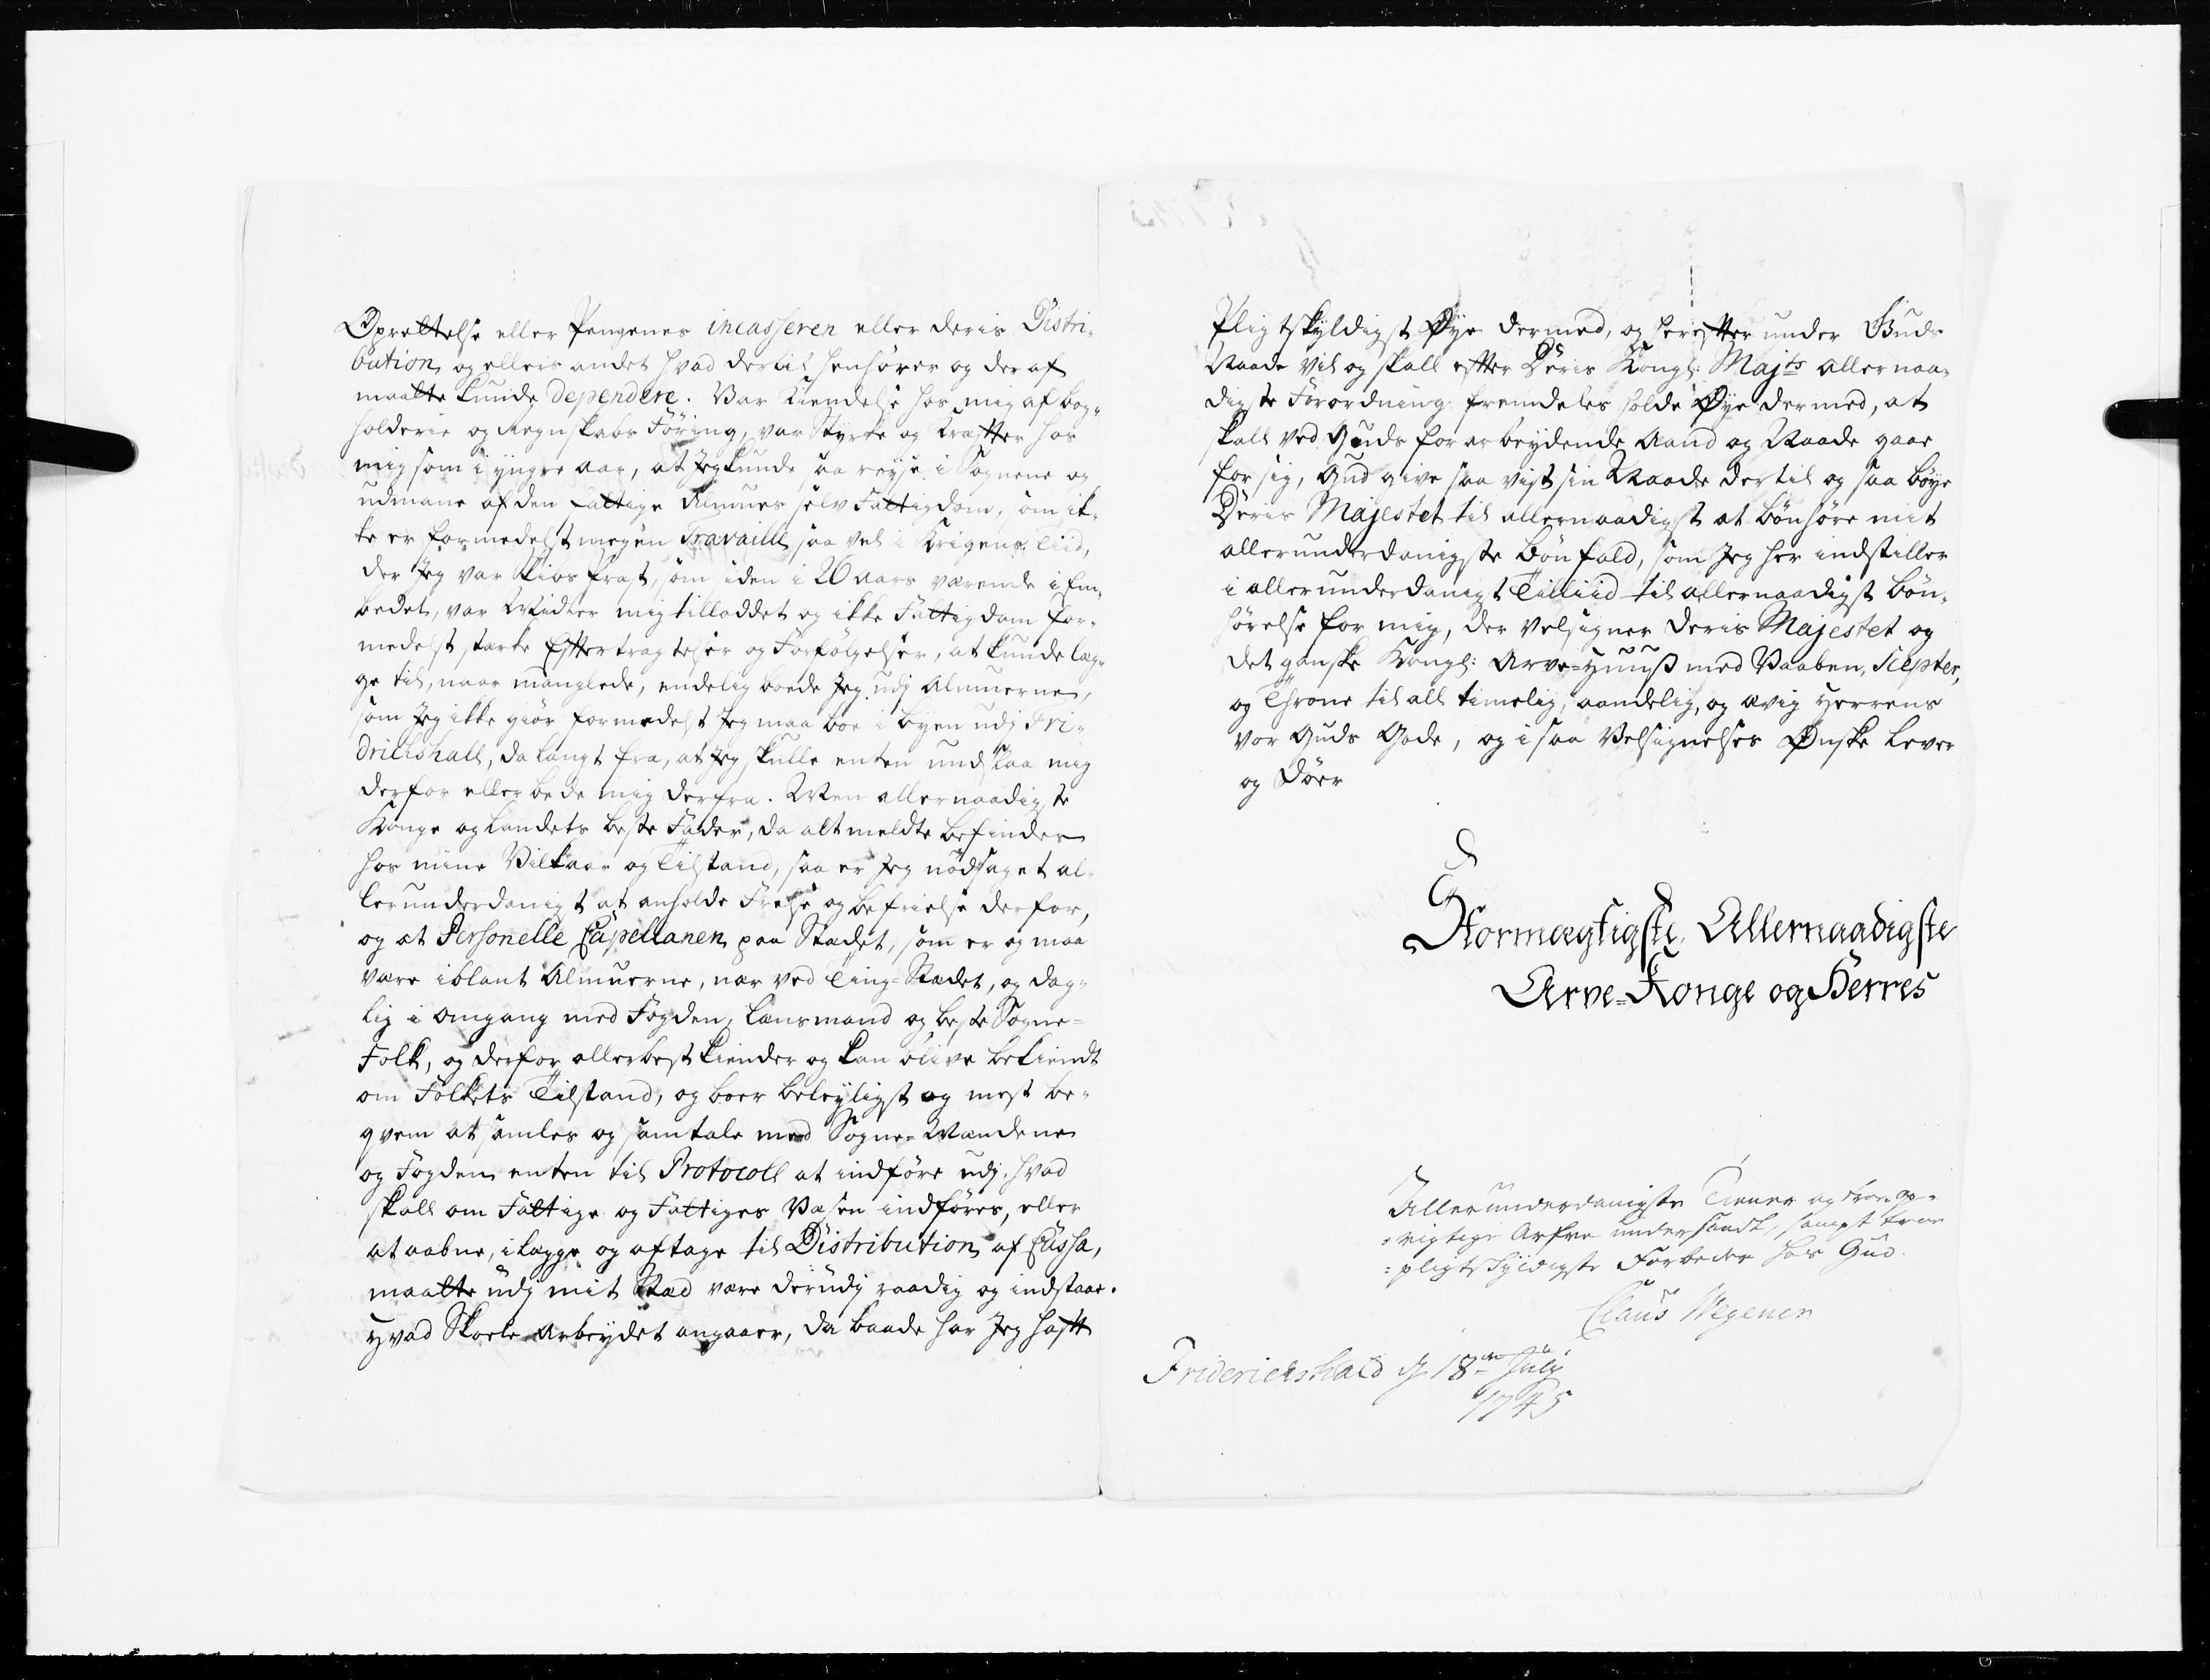 Oprettelse eller Pengenes incasseren eller deris Distri-
bution, og ellers andet hvad dertil henhører og deraf
maatte kunde dependere. Var Kiendelse hos mig af bog-
holderie og Regnskabs Föring, var Styrke og Kræfter hos
mig som i yngre aar, at Jeg kunde saa reyse i Sognene og
udmane af den fattige Almues selv Fattigdom, som ik-
ke er formedelst megen Travaille saa vel i Krigens Tiid,
der Jeg var Skibs Præst, som siden i 26 aars værende i Em-
bedet, var Midler mig tilladdet og ikke Fattigdom for-
medelst starke Eftertragtelser og Forfölgelser, at kunde læg-
ge til, naar manglede, endelig boede Jeg udj Almuerne,
som Jeg ikke giör formedelst Jeg maa boe i byen udj Fri-
drichshall, da langt fra, at Jeg skulle enten undslaa mig
derfor eller bede mig derfra. Men allernaadigste
Konge og Landets beste Fader, da alt meldte befindes
hos mine Vilkaar og Tilstand, saa er Jeg nödsaget al-
lerunderdanigst at anholde Frelse og befrielse derfor,
og at Personelle Capellanen paa Stædet, som er og maa
være iblant Almuerne, nær ved Ting-Stædet, og dag-
lig i omgang med Fogden, Lænsmand og beste Sogne-
Folk, og derfor allerbest kiender og kan blive bekiendt
om Folkets Tilstand, og boer beleyligst og mest be-
qvem at samles og samtale med Sogne-Mændene
og Fogden enten til Protocoll at indföre udj, hvad
skall om Fattige og Fattiges Væsen indföres, eller
at aabne, ilægge og aftage til Distribution af Cassa,
maatte udj mit Stæd være derudj raadig og indstaae.
Hvad Skole Arbeydet angaaer, da baade har Jeg haft
Pligtskyldigst Øye dermed, og herefter under Guds
Naade vil og skall efter Deris Kongl: Majts allernaa-
digste Forordning fremdeles holde Øye dermed, at
skall ved Guds forarbeydende Aand og Naade gaae
for sig, Gud give saa vist sin Naade dertil og saa böye
Deris Majestet til allernaadigst at bönhöre mit
allerunderdanigste bönfald, som Jeg her indstiller
i allerunderdanigst Tilliid til allernaadigst bön-
hörelse for mig, der velsigner Deris Majestet og
det ganske Kongl: Arve-Huuß med Vaaben, Scepter,
og Throne til all timelig, aandelig, og ævig Herrens
vor Guds Gode, og i saa Velsignelses Ønske lever
og döer
Stormægtigste, Allernaadigste
Arve-Konge og Herres
Allerunderdanigste Tiener og troe op-
rigtige Arfve undersaadt, sampt troe
pligtskyldigste Forbeder hos Gud.
Claus Wegener
Friderichshald d. 18de July
1745